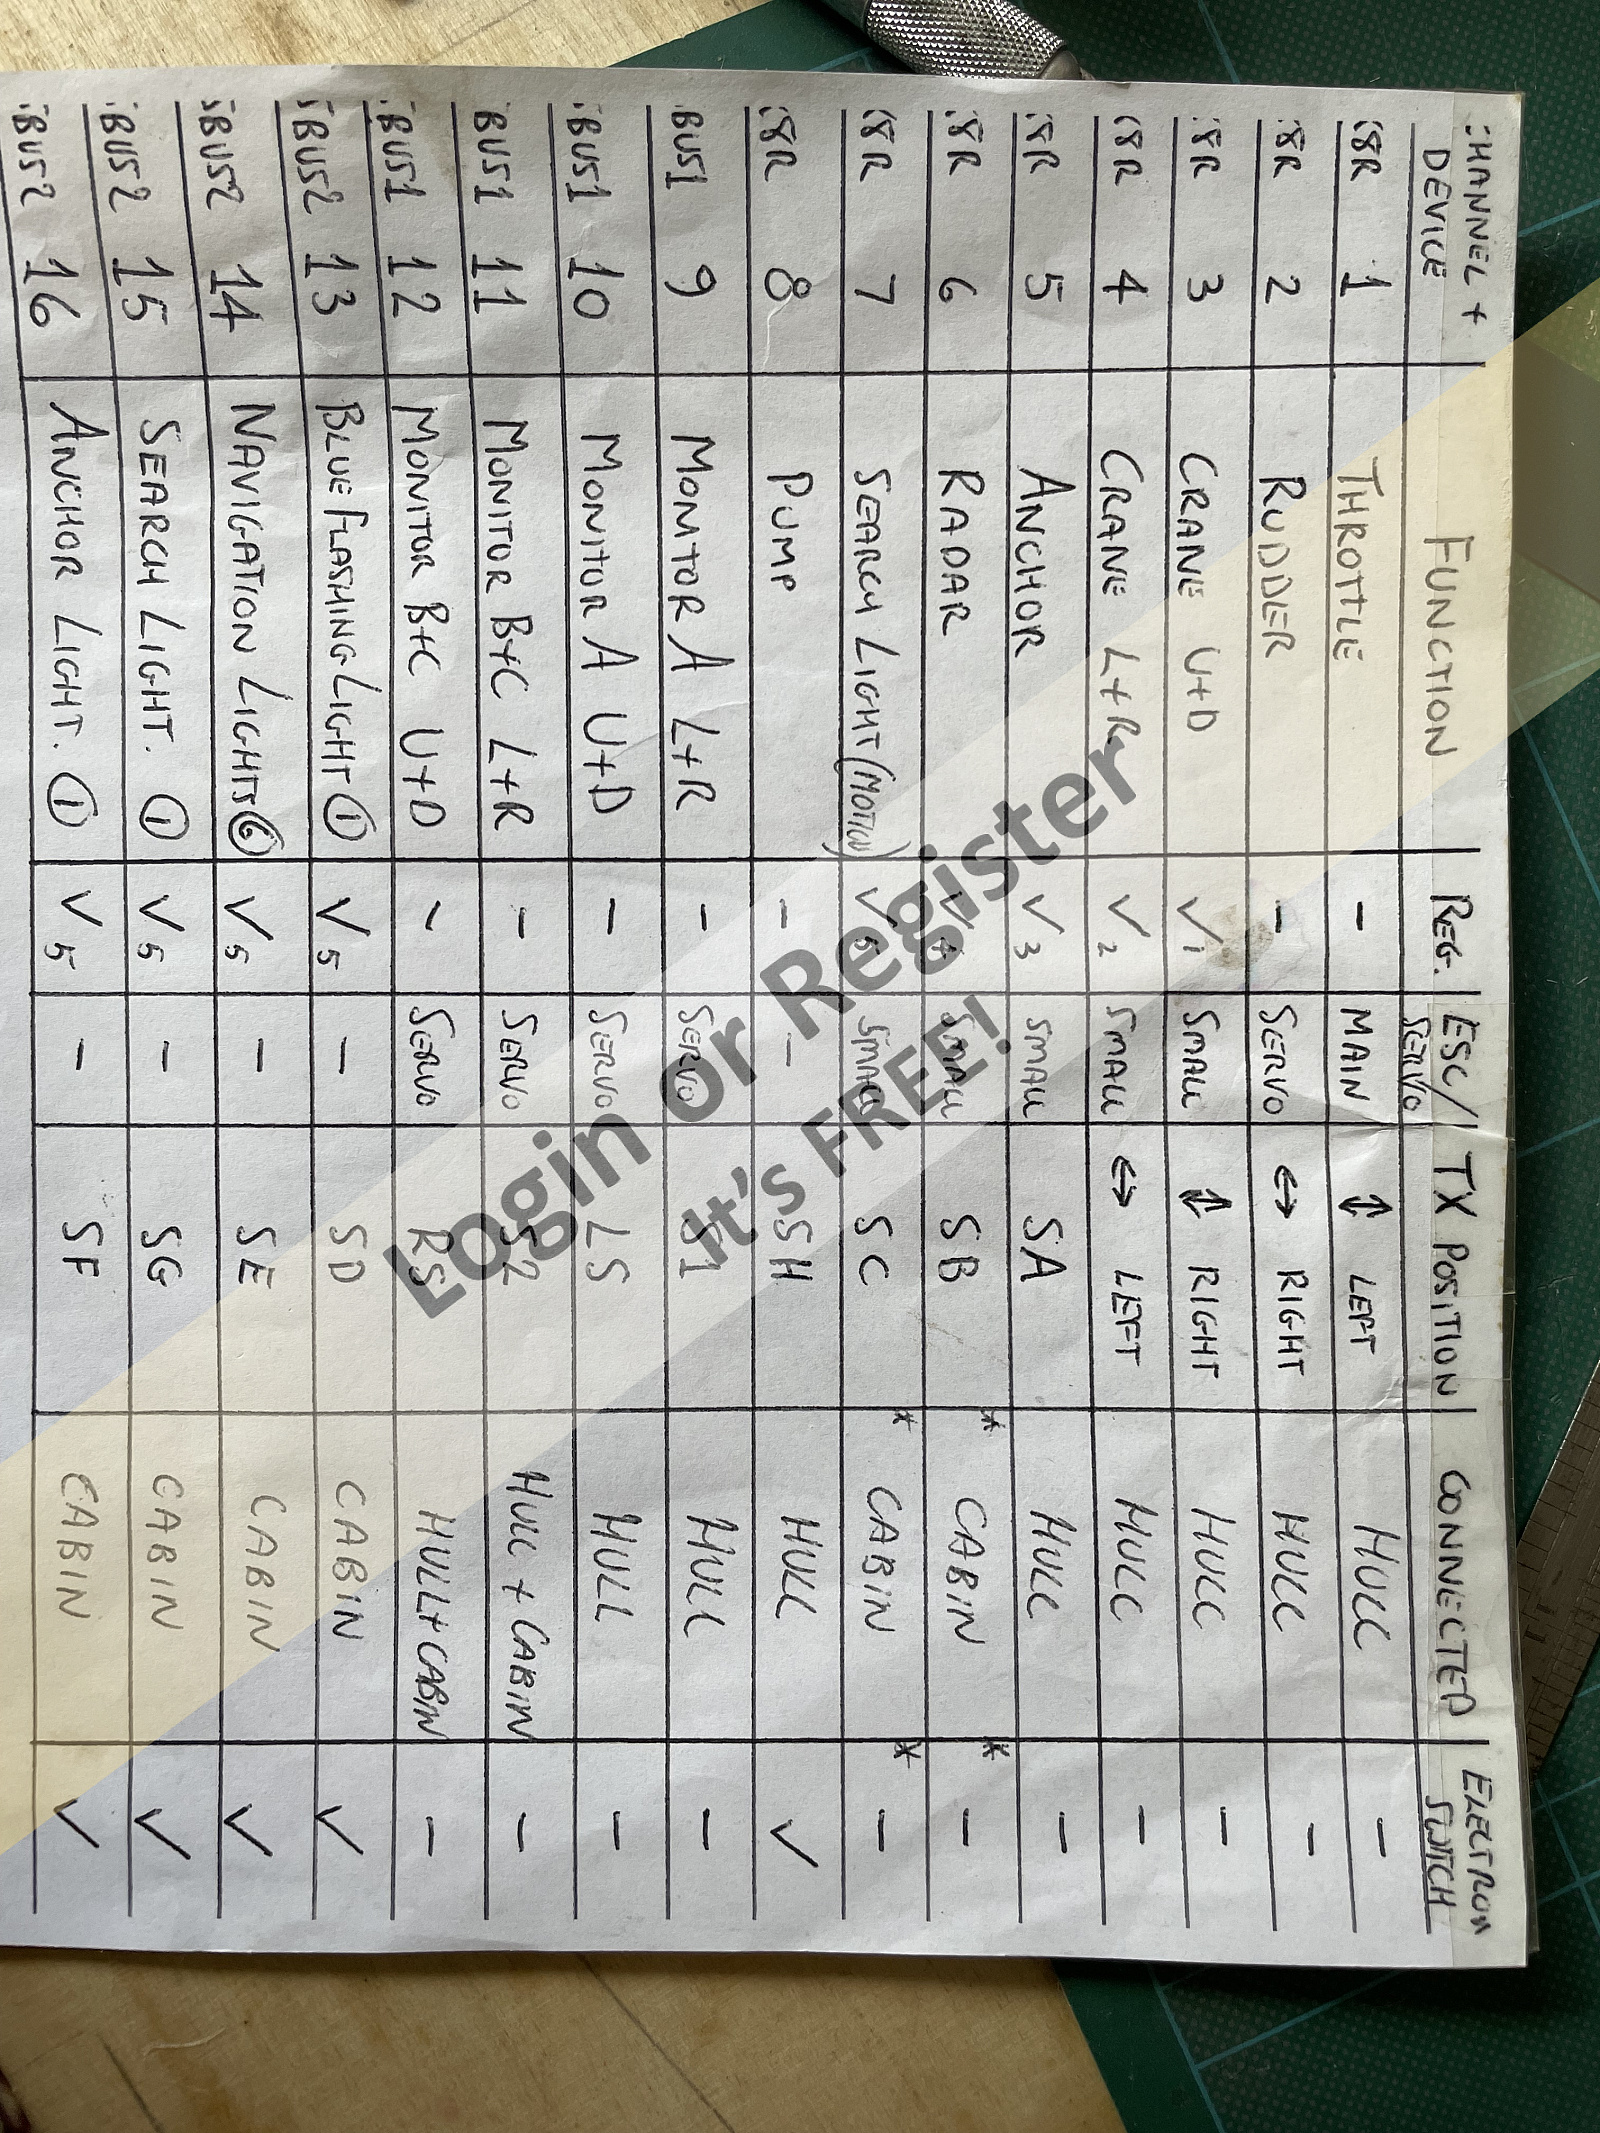 CHANNEL + DEVICE FUNCTION REG. ESC/SERVO TX POSITION CONNECTED ELECTRON SWITCH
X8R 1 THROTTLE - MAIN ↕ LEFT HULL -
X8R 2 RUDDER - SERVO ↔ RIGHT HULL -
X8R 3 CRANE U+D √1 SMALL ↕ RIGHT HULL -
X8R 4 CRANE L+R √2 SMALL ↔ LEFT HULL -
X8R 5 ANCHOR √3 SMALL SA HULL -
X8R 6 RADAR √4 SMALL SB * CABIN * -
X8R 7 SEARCH LIGHT (MOTION) √5 SMALL SC * CABIN * -
X8R 8 PUMP - - SH HULL √
SBUS1 9 MONITOR A L+R - SERVO S1 HULL -
SBUS1 10 MONITOR A U+D - SERVO LS HULL -
SBUS1 11 MONITOR B+C L+R - SERVO S2 HULL + CABIN -
SBUS1 12 MONITOR B+C U+D - SERVO RS HULL + CABIN -
SBUS2 13 BLUE FLASHING LIGHT ① √5 - SD CABIN √
SBUS2 14 NAVIGATION LIGHTS ⑥ √5 - SE CABIN √
SBUS2 15 SEARCH LIGHT. ① √5 - SG CABIN √
SBUS2 16 ANCHOR LIGHT. ① √5 - SF CABIN √
Login or Register
It's FREE!